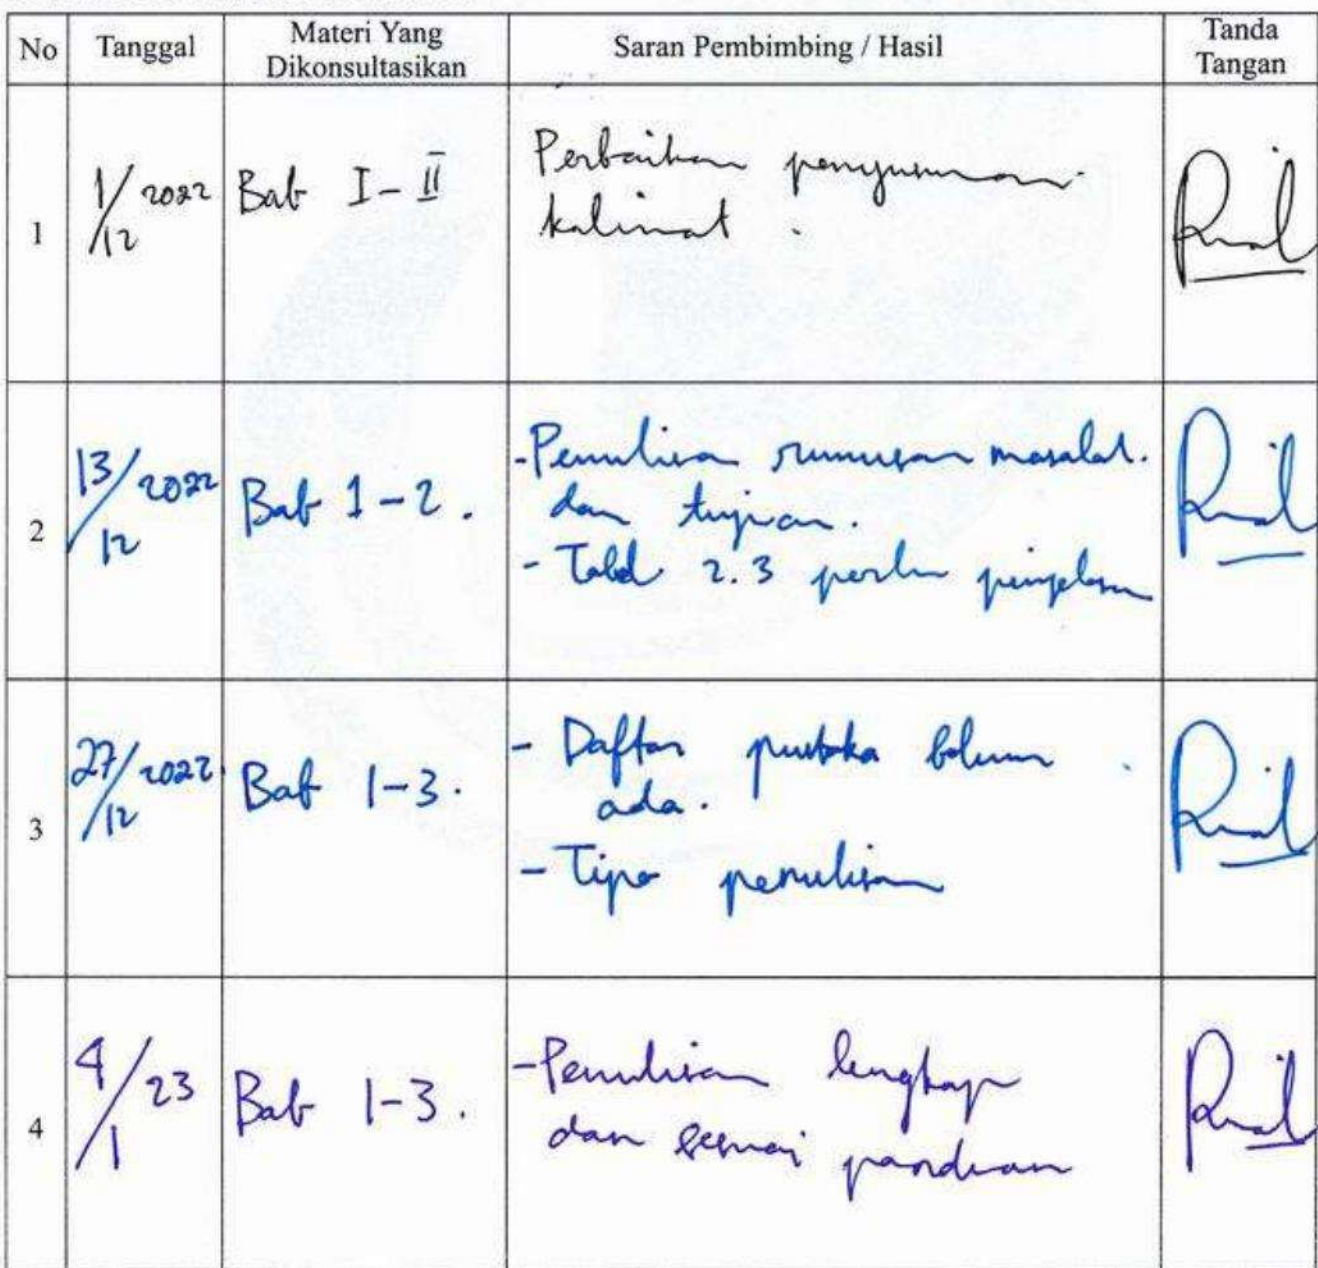 No Tanggal Materi Yang Dikonsultasikan Saran Pembimbing / Hasil Tanda Tangan
1 1/12 2022 Bab I - II Perbaikan penyusunan
kalimat.
2 13/12 2022 Bab 1-2. - Penulisan rumusan masalah.
dan tujuan.
- Tabel 2.3 perlu penjelasan
3 27/12 2022 Bab 1-3. - Daftar pustaka belum
ada.
- Tipo penulisan
4 4/1 23 Bab 1-3. - Penulisan lengkap
dan sesuai panduan